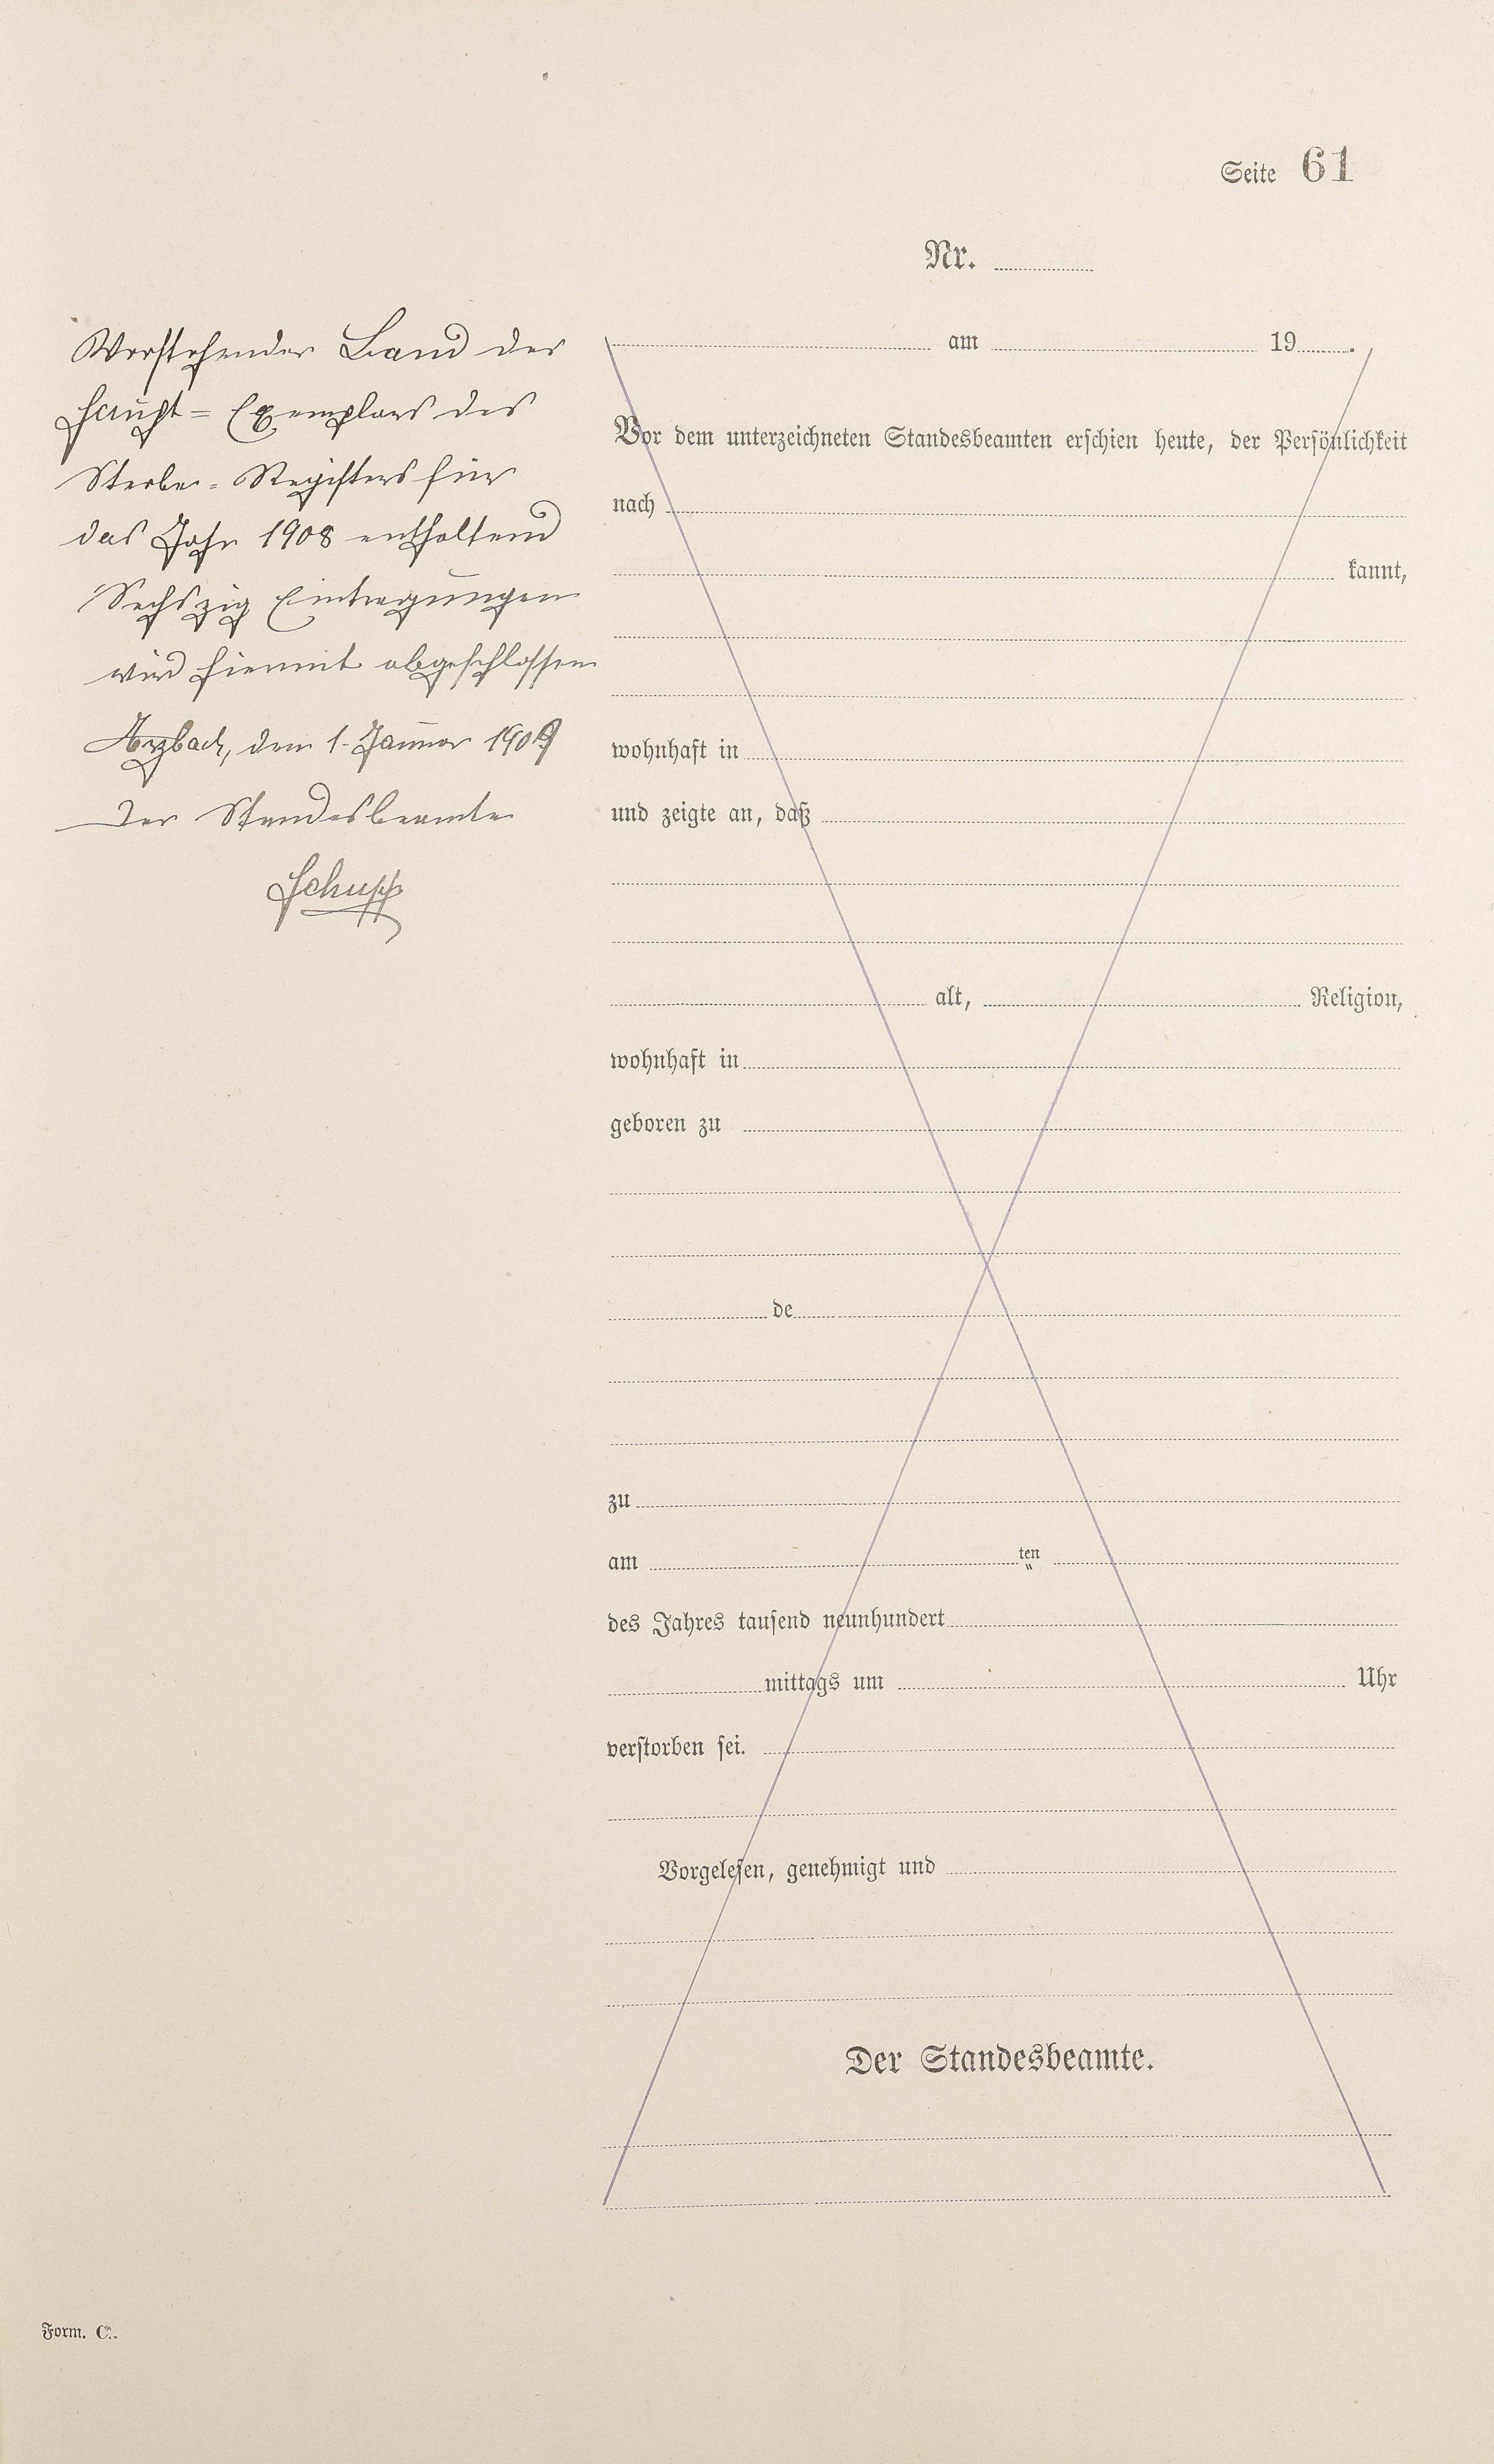 Seite 61
Nr.
Vorstehender Band des
Haupt=Exemplars des
Sterbe=Registers für
das Jahr 1908 enthaltend
Sechszig Eintragungen
wird hiermit abgeschlossen
Arzbach, den 1. Januar 1909
Der Standesbeamte
Schupp
am 19 .
Vor dem unterzeichneten Standesbeamten erschien heute, der Persönlichkeit
nach
kannt,
wohnhaft in
und zeigte an, daß
alt, Religion,
wohnhaft in
geboren zu
de
zu
am ten
des Jahres tausend neunhundert
mittags um Uhr
verstorben sei.
Vorgelesen, genehmigt und
Der Standesbeamte.
Form. C.